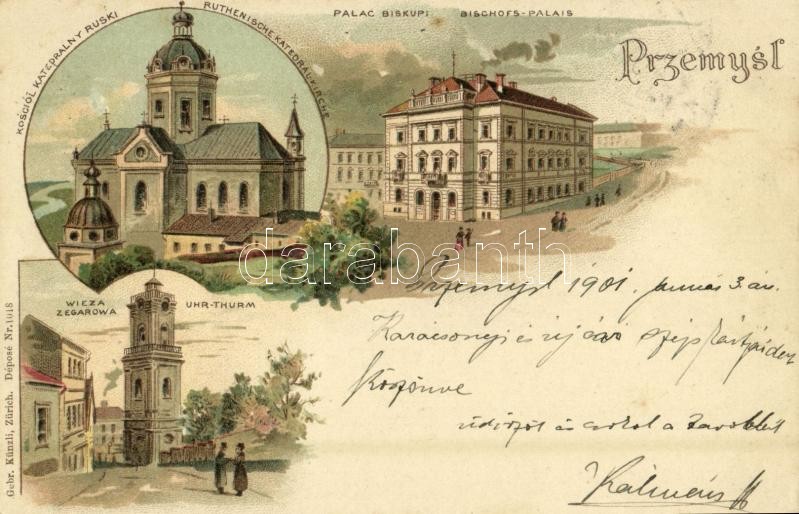 KOŚCIÓŁ KATEPRALNY RUSKI
RUTHENISCHE KATEDRAL-KIRCHE
PALAC BISKUPI BISCHOFS-PALAIS
Przemyśl
darabanth
WIEZA ZEGAROWA
UHR-THURM
Przemysl 1901. 3.án
Karácsonyi és új évi szép
Köszönve
üdvözöl és csókol a
Kálmán
Gebr. Künzli, Zürich. Déposé Nr. 1018